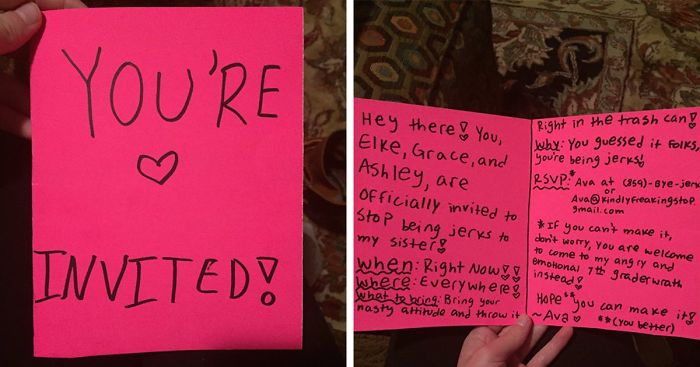 YOU'RE
INVITED!
Hey there! You,
Elke, Grace, and
Ashley, are
officially invited to
stop being jerks to
my sister!
when: Right Now!!
where: Everywhere!
what to bring: Bring your
nasty attitude and throw it
Right in the trash can!
Why: You guessed it folks,
you're being jerks!
RSVP:* Ava at (859)-Bye-jerk
or
Ava@Kindlyfreakingstop.
gmail.com
*If you can't make it,
don't worry, you are welcome
to come to my angry and
emotional 7th grader wrath
instead!
Hope** you can make it!
~Ava
**(you better)